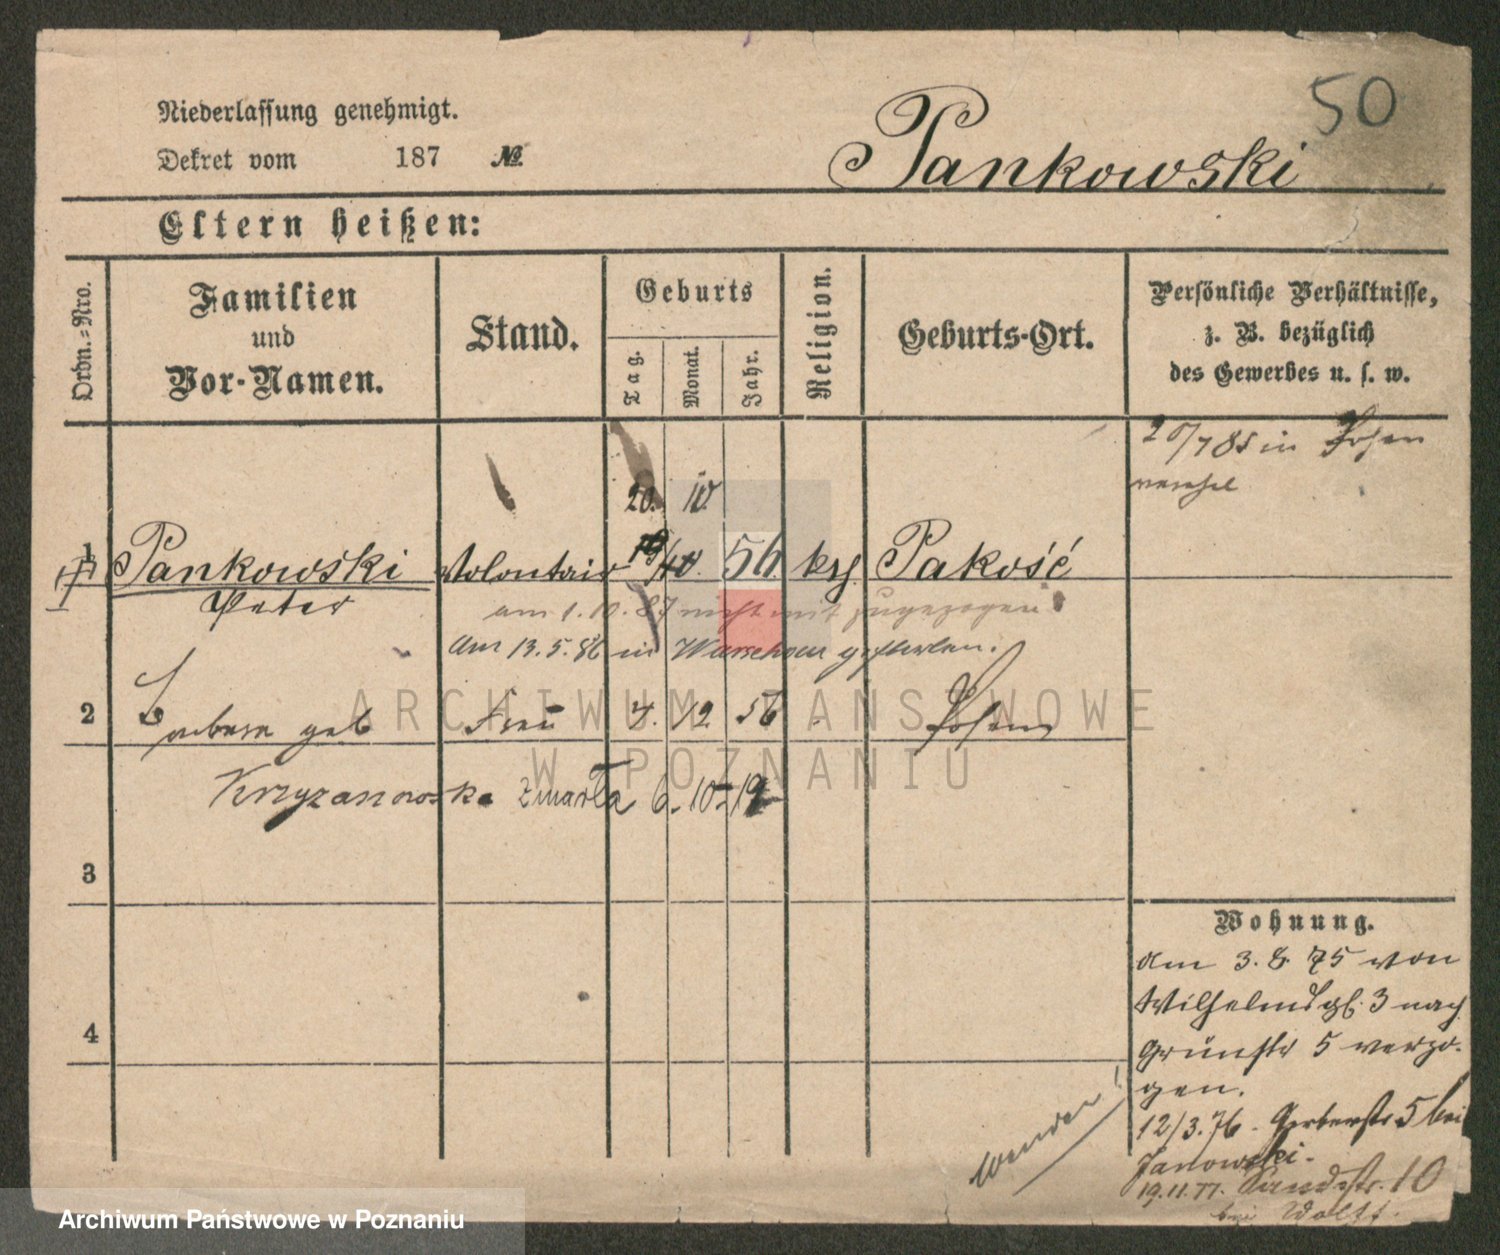 50
Niederlassung genehmigt.
Dekret vom 187 №
Pankowski
Eltern heißen:
Ordn.-Nro.
Familien
und
Vor-Namen.
Stand.
Geburts
Tag.
Monat.
Jahr.
Religion.
Geburts-Ort.
Persönliche Verhältnisse,
z. B. bezüglich
des Gewerbes u. s. w.
20/7 85 in Posen
20. 10
1 Pankowski Volontair 56 Pakość
Peter
am 1.10.87 nicht mit zugezogen
Am 13.5.86 in Warschau gestorben.
2 Barbara geb Frau 4. 12 56 Posen
Krzyzanowska zmarła 6.-10-19
3
4
Wohnung.
Am 3.8.75 von
Wilhelmspl. 3 nach
Grünstr 5 verzo-
gen.
12/3.76. Gerberstr. 5 bei
Janowski.
19.11.77. Sandstr. 10
bei Wolff.
wenden!
ARCHIWUM PAŃSTWOWE
W POZNANIU
Archiwum Państwowe w Poznaniu